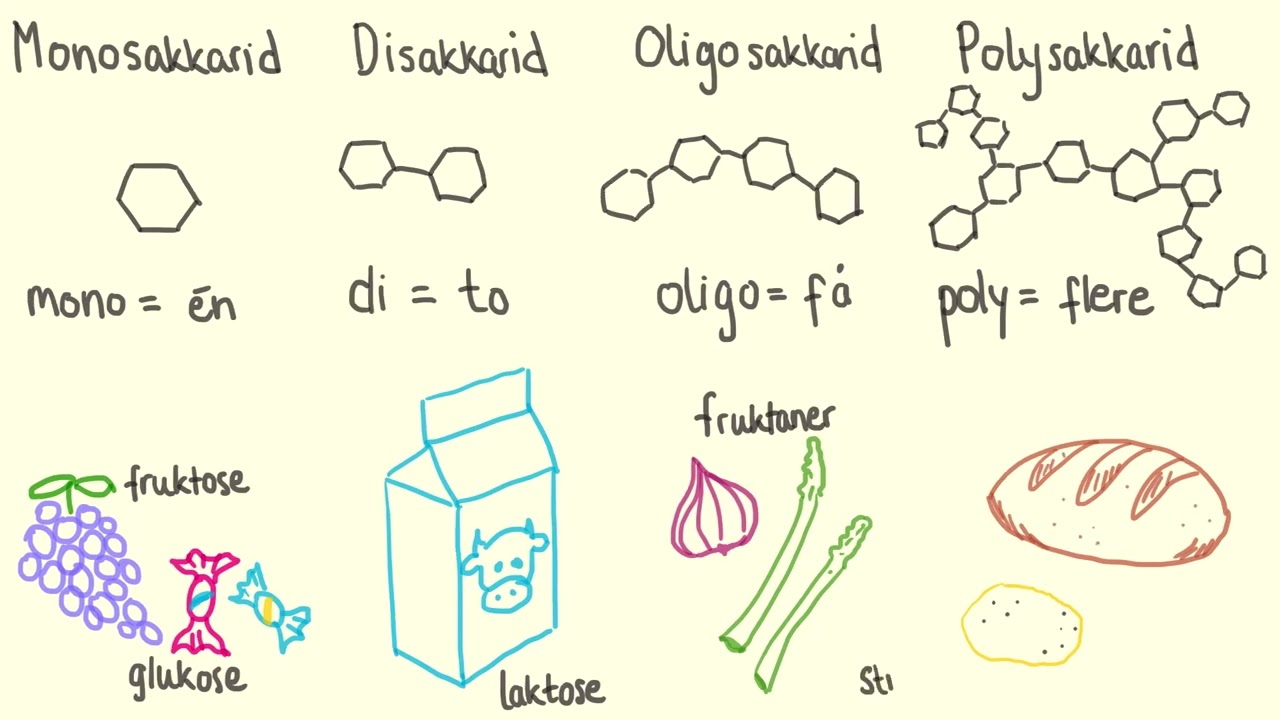 Monosakkarid
Disakkarid
Oligosakkarid
Polysakkarid
mono = én
di = to
oligo = få
poly = flere
fruktose
glukose
laktose
fruktaner
sti